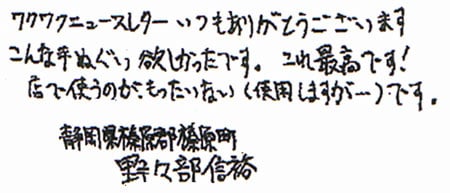 ワクワクニュースレターいつもありがとうございます
こんな手ぬぐい欲しかったです。これ最高です!
店で使うのが、もったいない(使用しますが…)です。
静岡県榛原郡榛原町
野々部信裕